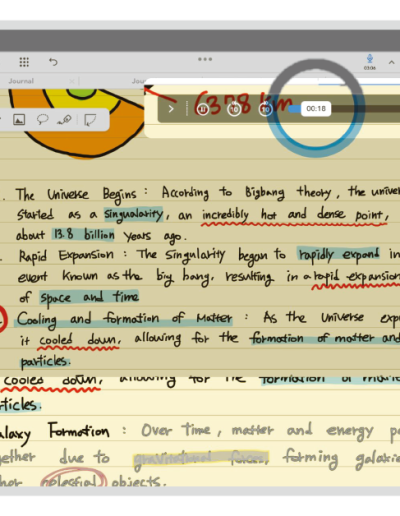 Journal
Jou
6378 km
00:18
The Universe Begins : According to Bigbang theory, the univer
started as a singularity, an incredibly hot and dense point,
about 13.8 billion years ago.
Rapid Expansion : The singularity began to rapidly expand in
event known as the big bang, resulting in a rapid expansion
of space and time
Cooling and formation of Matter : As the Universe expa
it cooled down, allowing for the formation of matter and
particles.
cooled down, allowing for the formation of matter
ticles.
alaxy Formation : Over time, matter and energy
gether due to gravitational forces, forming galaxie
her celestial objects.